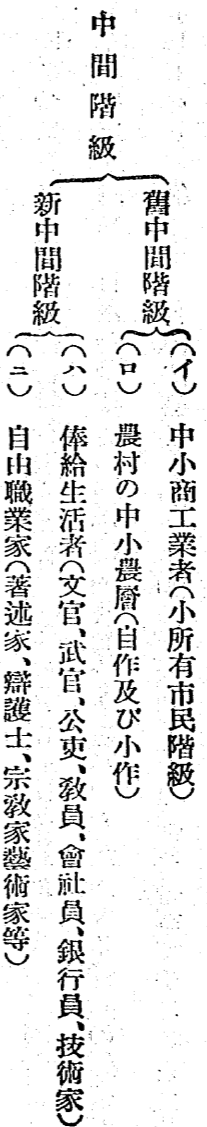 中間階級
舊中間階級
(イ) 中小商工業者(小所有市民階級)
(ロ) 農村の中小農層(自作及び小作)
新中間階級
(ハ) 俸給生活者(文官、武官、公吏、敎員、會社員、銀行員、技術家)
(ニ) 自由職業家(著述家、辯護士、宗敎家藝術家等)